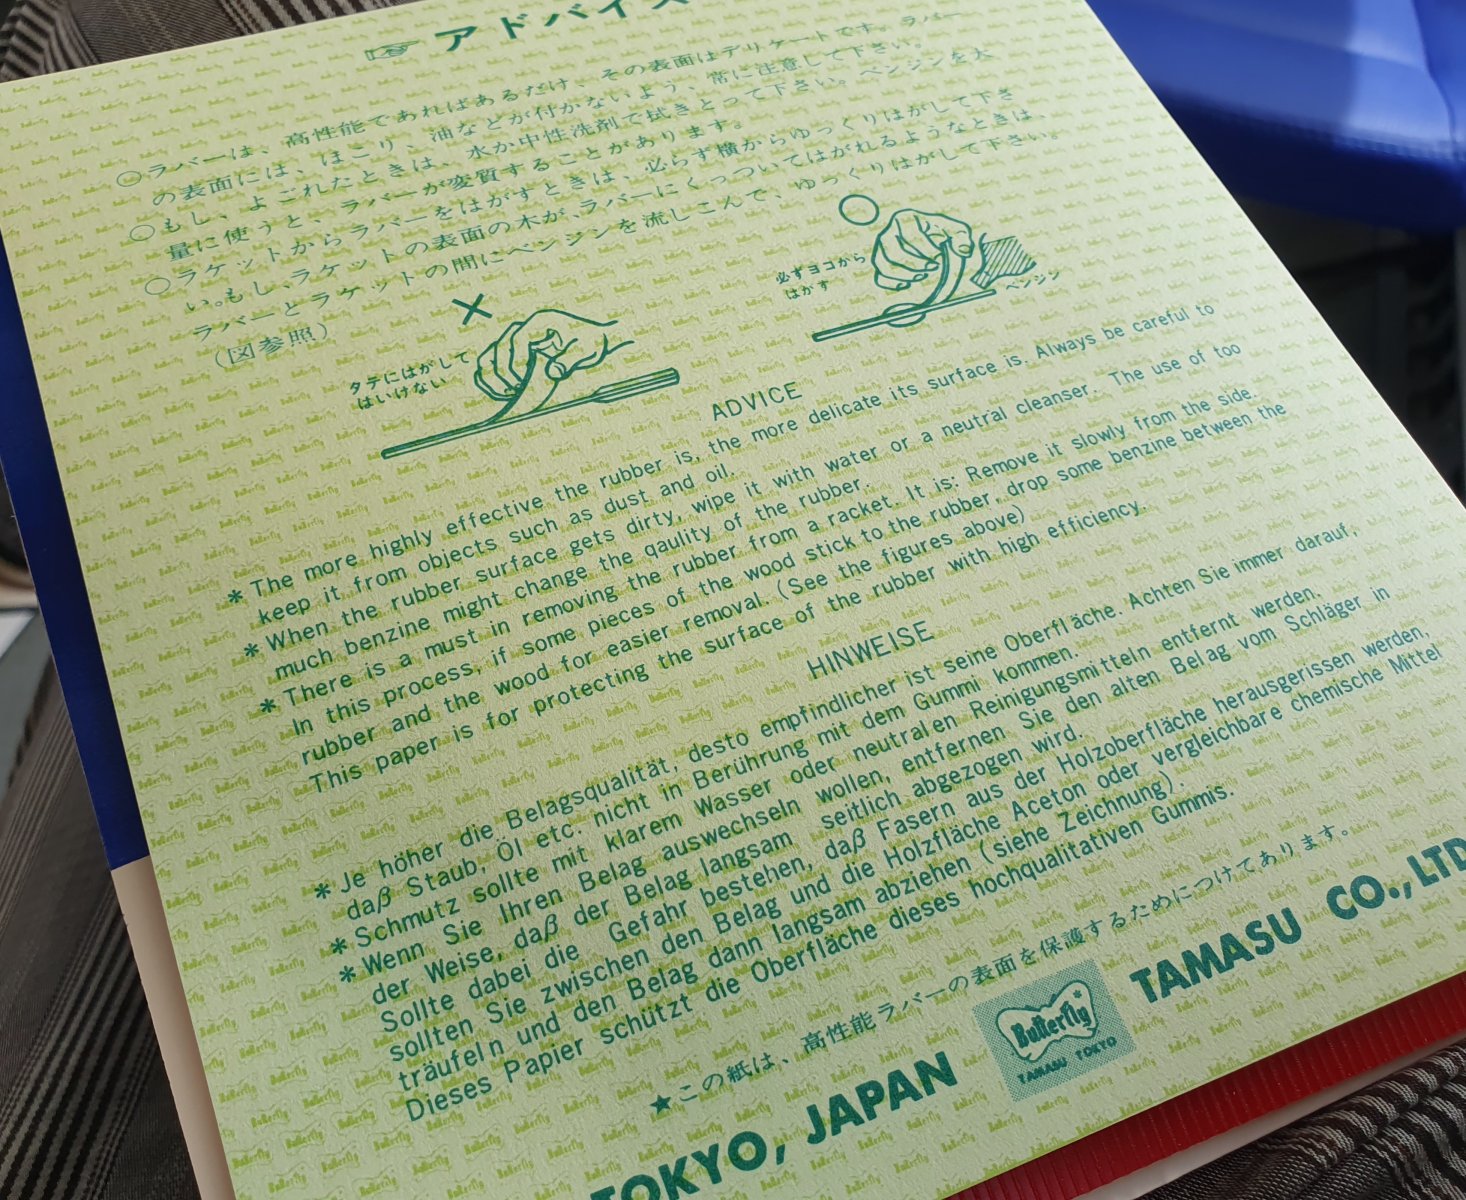 ☞ アドバイス
○ラバーは、高性能であればあるだけ、その表面はデリケートです。ラバー
の表面には、ほこり、油などが付かないよう、常に注意して下さい。
○もし、よごれたときは、水か中性洗剤で拭きとって下さい。ベンジンを大
量に使うと、ラバーが変質することがあります。
○ラケットからラバーをはがすときは、必らず横からゆっくりはがして下さ
い。もし、ラケットの表面の木が、ラバーにくっついてはがれるようなときは、
ラバーとラケットの間にベンジンを流しこんで、ゆっくりはがして下さい。
(図参照)
×
タテにはがして
はいけない
○
必ずヨコから
はがす
ベンジン
ADVICE
* The more highly effective the rubber is, the more delicate its surface is. Always be careful to
keep it from objects such as dust and oil.
* When the rubber surface gets dirty, wipe it with water or a neutral cleanser. The use of too
much benzine might change the qaulity of the rubber.
* There is a must in removing the rubber from a racket. It is: Remove it slowly from the side.
In this process, if some pieces of the wood stick to the rubber, drop some benzine between the
rubber and the wood for easier removal. (See the figures above)
This paper is for protecting the surface of the rubber with high efficiency.
HINWEISE
* Je höher die Belagsqualität, desto empfindlicher ist seine Oberfläche. Achten Sie immer darauf,
daß Staub, Öl etc. nicht in Berührung mit dem Gummi kommen.
* Schmutz sollte mit klarem Wasser oder neutralen Reinigungsmitteln entfernt werden.
* Wenn Sie Ihren Belag auswechseln wollen, entfernen Sie den alten Belag vom Schläger in
der Weise, daß der Belag langsam seitlich abgezogen wird.
Sollte dabei die Gefahr bestehen, daß Fasern aus der Holzoberfläche herausgerissen werden,
sollten Sie zwischen den Belag und die Holzfläche Aceton oder vergleichbare chemische Mittel
träufeln und den Belag dann langsam abziehen (siehe Zeichnung).
Dieses Papier schützt die Oberfläche dieses hochqualitativen Gummis.
★この紙は、高性能ラバーの表面を保護するためにつけてあります。
TOKYO, JAPAN
Butterfly
TAMASU TOKYO
TAMASU CO., LTD